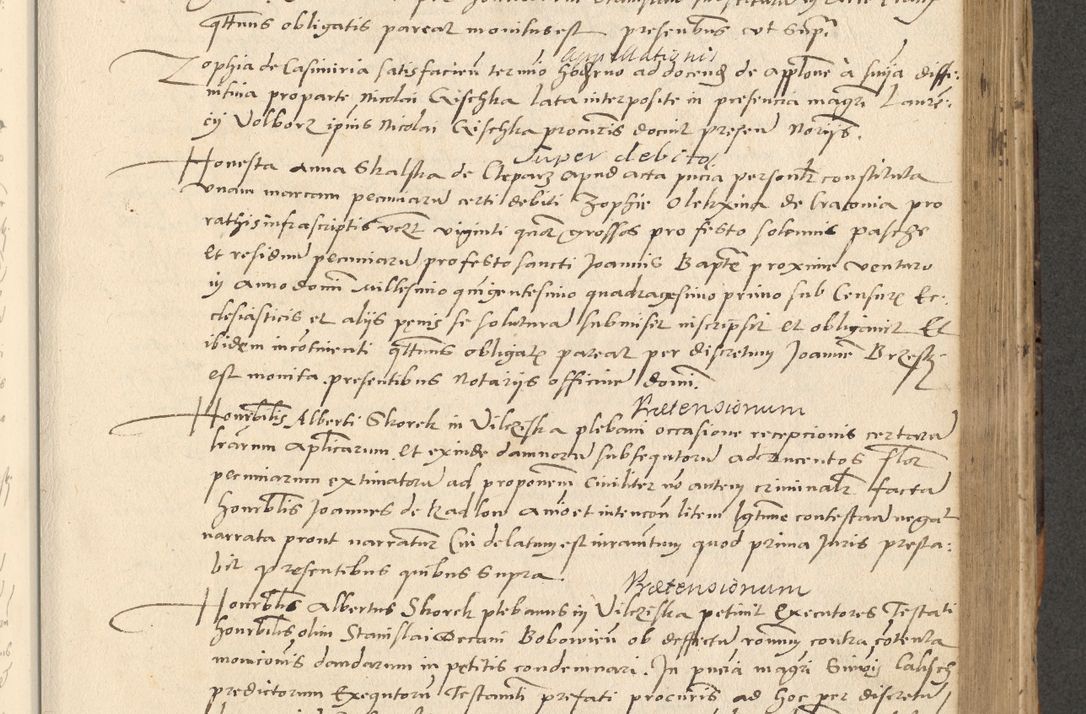 qttenus obligatis pareat monitus est presentibus ut supra
Appellationis
Zophia de Casimiria satisfacien termino hodierno ad docend de applone à snia diffi-
nitiua pro parte Nicolai Gischka lata interposite in presencia magri Lauren-
cij Volborz ipius Nicolai Gischka procuris docuit presen Norijs.
Super debito
Honesta Anna Skalska de Cleparz apud acta pncia personlr constituta
Vnam marcam pecuniaru certi debiti Zophie Olexina de Cracouia pro
rathis infrascriptis vczt viginti quatuor grossos pro festo solennis pasche
Et residuu pecuniaru pro festo sancti Joannis Bapte proxime venturo
in Anno domi Millesimo quingentesimo quadragesimo primo sub Censuris Ec-
clesiasticis et alijs penis se soluturam submisit inscripsit et obligauit Et
ibidem incontinenti qttenus obligatis pareat per discretum Joannem Brzesk
est monita presentibus Notarijs officine domi.
Prætensionum
Honorbilis Alberti Skorek in Vilczska plebani occasione recepcionis certaru
lrarum Aplicarum Et exinde damnoru subsequtoru ad ducentos flor
pecuniarum extimatoru ad proponem Ciuiliter no autem criminalr facta
honorblis Joannes de Radlow animo et intencon litem lgttime contestan negat
narrata prout narrantur Cui delatum est iuramtum quod prima Juris presta-
bit presentibus quibus supra.
Prætensionum
Honorblis Albertus Skorek plebanus in Vilczska petiuit Executores Testati
honorbilis olim Stanislai Decani Bobowien ob deffectu ronum contra contenta
monicionis dandarum in petitis condemnari. In pncia magri Simonis Calisch
predictorum Exequtoru Testamti prefati procuris ad hoc per discretu